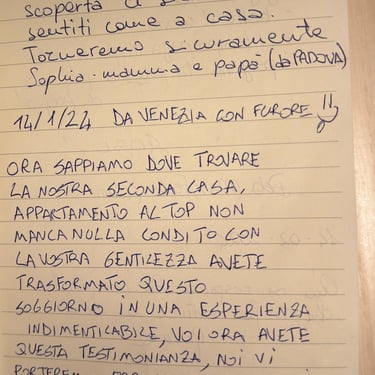 scoperta ci
sentiti come a casa.
Torneremo sicuramente
Sophia. mamma e papà (da PADOVA)
14/1/24 DA VENEZIA CON FURORE !!
ORA SAPPIAMO DOVE TROVARE
LA NOSTRA SECONDA CASA,
APPARTAMENTO AL TOP NON
MANCA NULLA CONDITO CON
LA VOSTRA GENTILEZZA AVETE
TRASFORMATO QUESTO
SOGGIORNO IN UNA ESPERIENZA
INDIMENTICABILE, VOI ORA AVETE
QUESTA TESTIMONIANZA, NOI VI